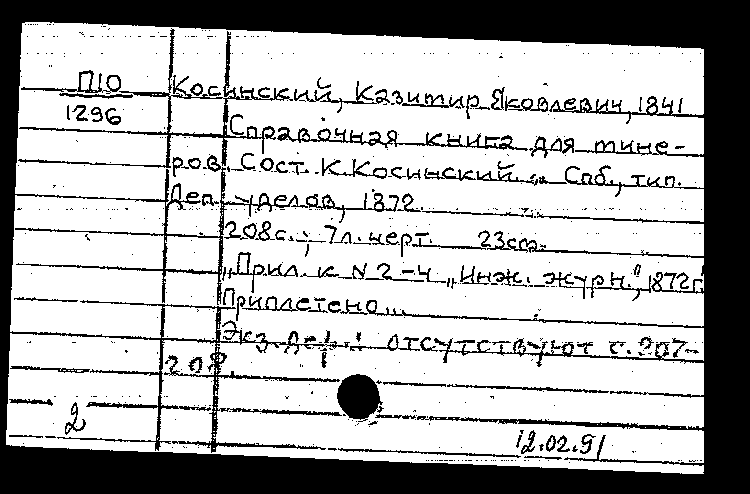 П10
1296
Косинский, Казимир Яковлевич, 1841
Справочная книга для мине-
ров. Сост. К. Косинский. „ Спб., тип.
Деп. уделов, 1872.
208с.; 7л. черт. 23см.
„Прил. к N 2-4 „Инж. журн.", 1872г.
Приплетено...
Экз. деф.: отсутствуют с. 207-
208.
2
12.02.91